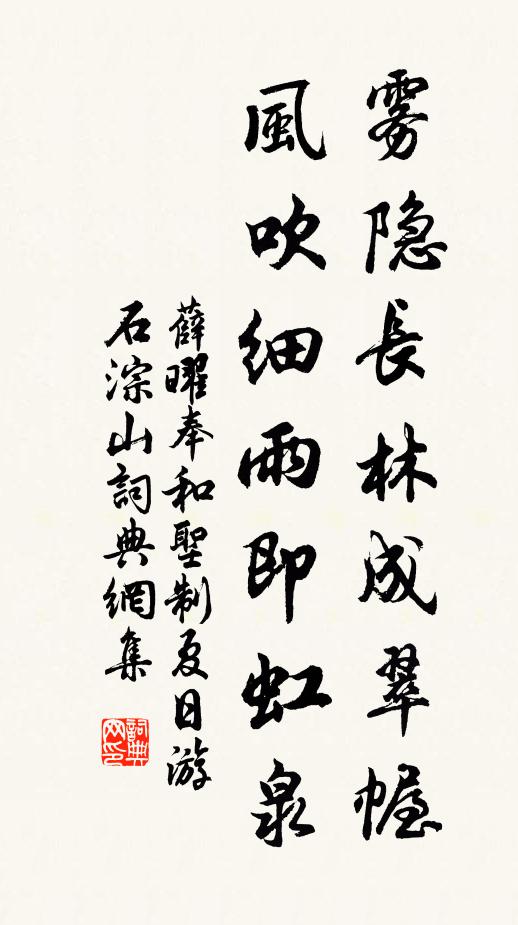 雾隐長林成翠幄
風吹细雨即虹泉
薛曜奉和聖制夏日游
石淙山詞典網集
詞典网印